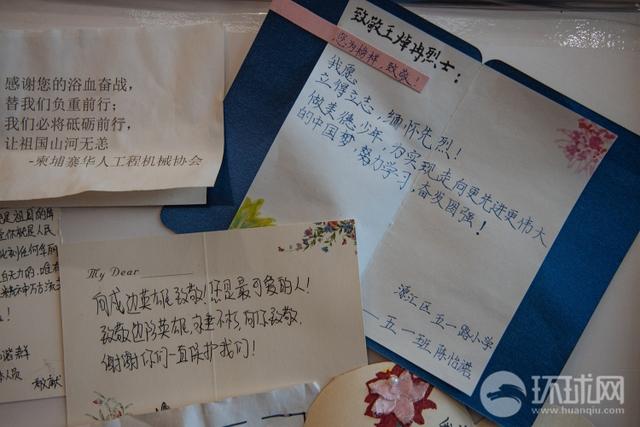 感谢您的浴血奋战，
替我们负重前行；
我们必将砥砺前行，
让祖国山河无恙
-柬埔寨华人工程机械协会
致敬王焯冉烈士：
您为榜样，致敬！
我愿，
立得立志，缅怀先烈！
做美德少年，为实现走向更先进更伟大
的中国梦，努力学习，奋发图强！
源江区五一路小学
——五一班 陈怡浩
My Dear
向戍边英雄致敬！您是最可爱的人！
致敬边防英雄，永垂不朽，向你致敬，
谢谢你们一直保护我们！
敬献
环球网
www.huanqiu.com